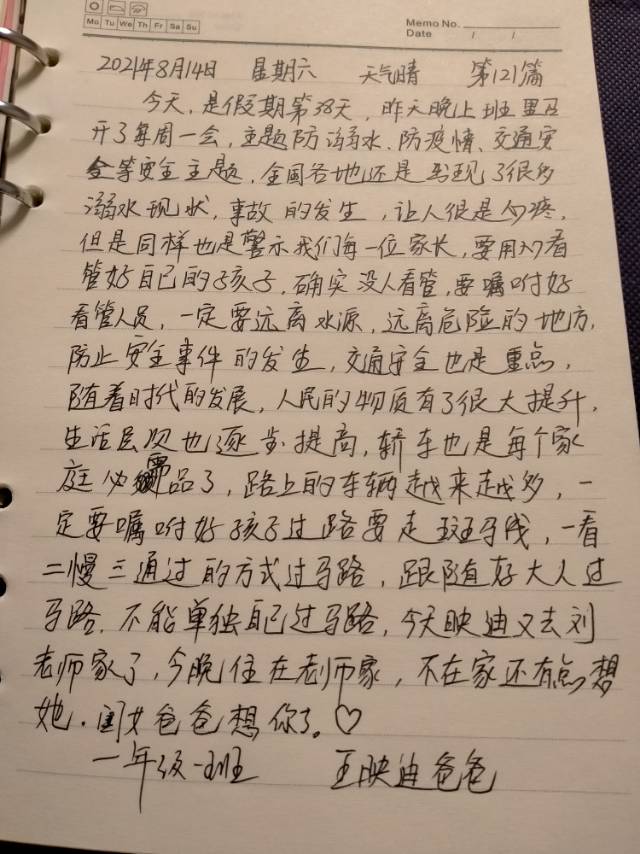 Mo Tu We Th Fr Sa Su
Memo No.
Date / /
2021年8月14日 星期六 天气晴 第121篇
今天,是假期第38天,昨天晚上班里召
开了每周一会,主题防溺水、防疫情、交通安
全等安全主题,全国各地还是出现了很多
溺水现状,事故的发生,让人很是心疼,
但是同样也是警示我们每一位家长,要用心看
管好自己的孩子,确实没人看管,要嘱咐好
看管人员,一定要远离水源,远离危险的地方,
防止安全事件的发生,交通安全也是重点,
随着时代的发展,人民的物质有了很大提升,
生活层次也逐步提高,轿车也是每个家
庭必需品了,路上的车辆越来越多,一
定要嘱咐好孩子过路要走斑马线,一看
二慢三通过的方式过马路,跟随好大人过
马路,不能单独自己过马路,今天映迪又去刘
老师家了,今晚住在老师家,不在家还有点想
她.闺女爸爸想你了。♡
一年级一班 王映迪爸爸